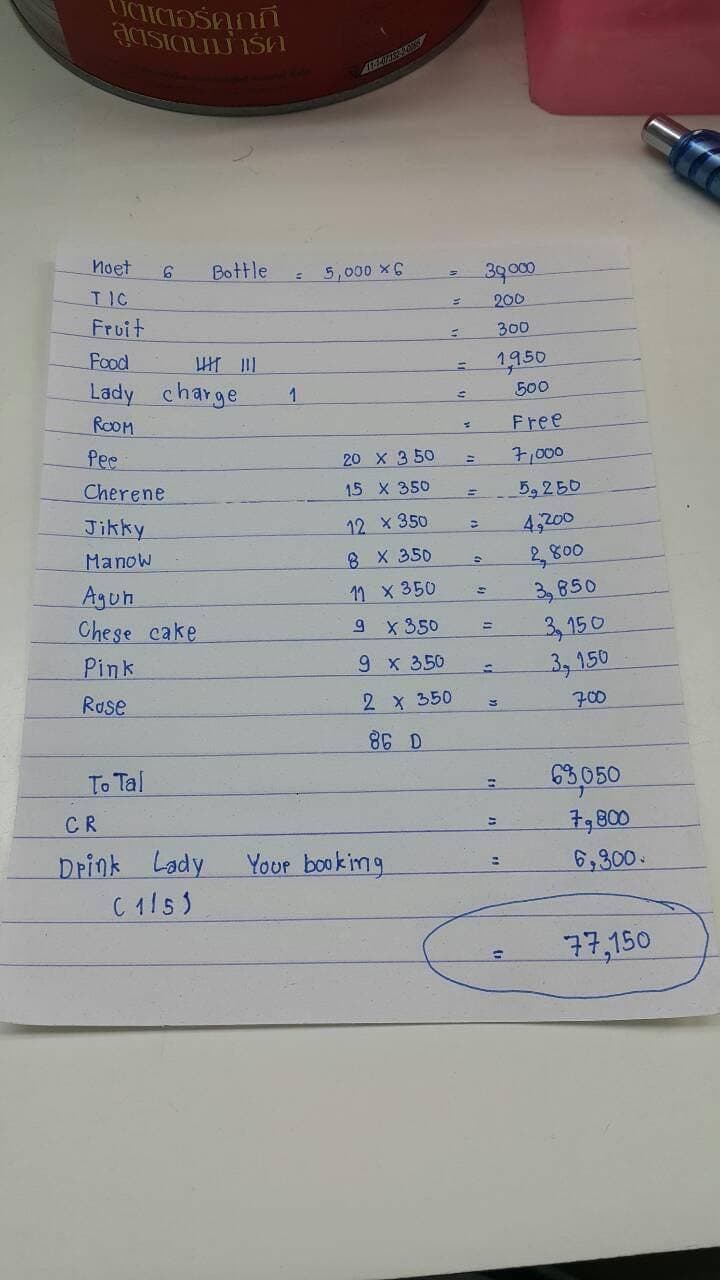 บัตเตอร์คุกกี้
สูตรเดนมาร์ค
Moet 6 Bottle = 5,000 x 6 = 30,000
TIC = 200
Fruit = 300
Food 卌 III = 1,950
Lady charge 1 = 500
ROOM = Free
Pee 20 x 350 = 7,000
Cherene 15 x 350 = 5,250
Jikky 12 x 350 = 4,200
Manow 8 x 350 = 2,800
Agun 11 x 350 = 3,850
Chese cake 9 x 350 = 3,150
Pink 9 x 350 = 3,150
Rose 2 x 350 = 700
86 D
ToTal = 63,050
CR = 7,800
Drink Lady Your booking = 6,300.
(1/5)
= 77,150